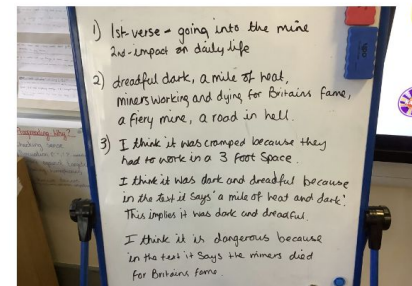 1) 1st verse - going into the mine
2nd - impact on daily life
2) dreadful dark, a mile of heat,
miners working and dying for Britains fame,
a fiery mine, a road in hell.
3) I think it was cramped because they
had to work in a 3 foot space.
I think it was dark and dreadful because
in the text it says 'a mile of heat and dark'.
This implies it was dark and dreadful.
I think it is dangerous because
in the text it says the miners died
for Britains fame.